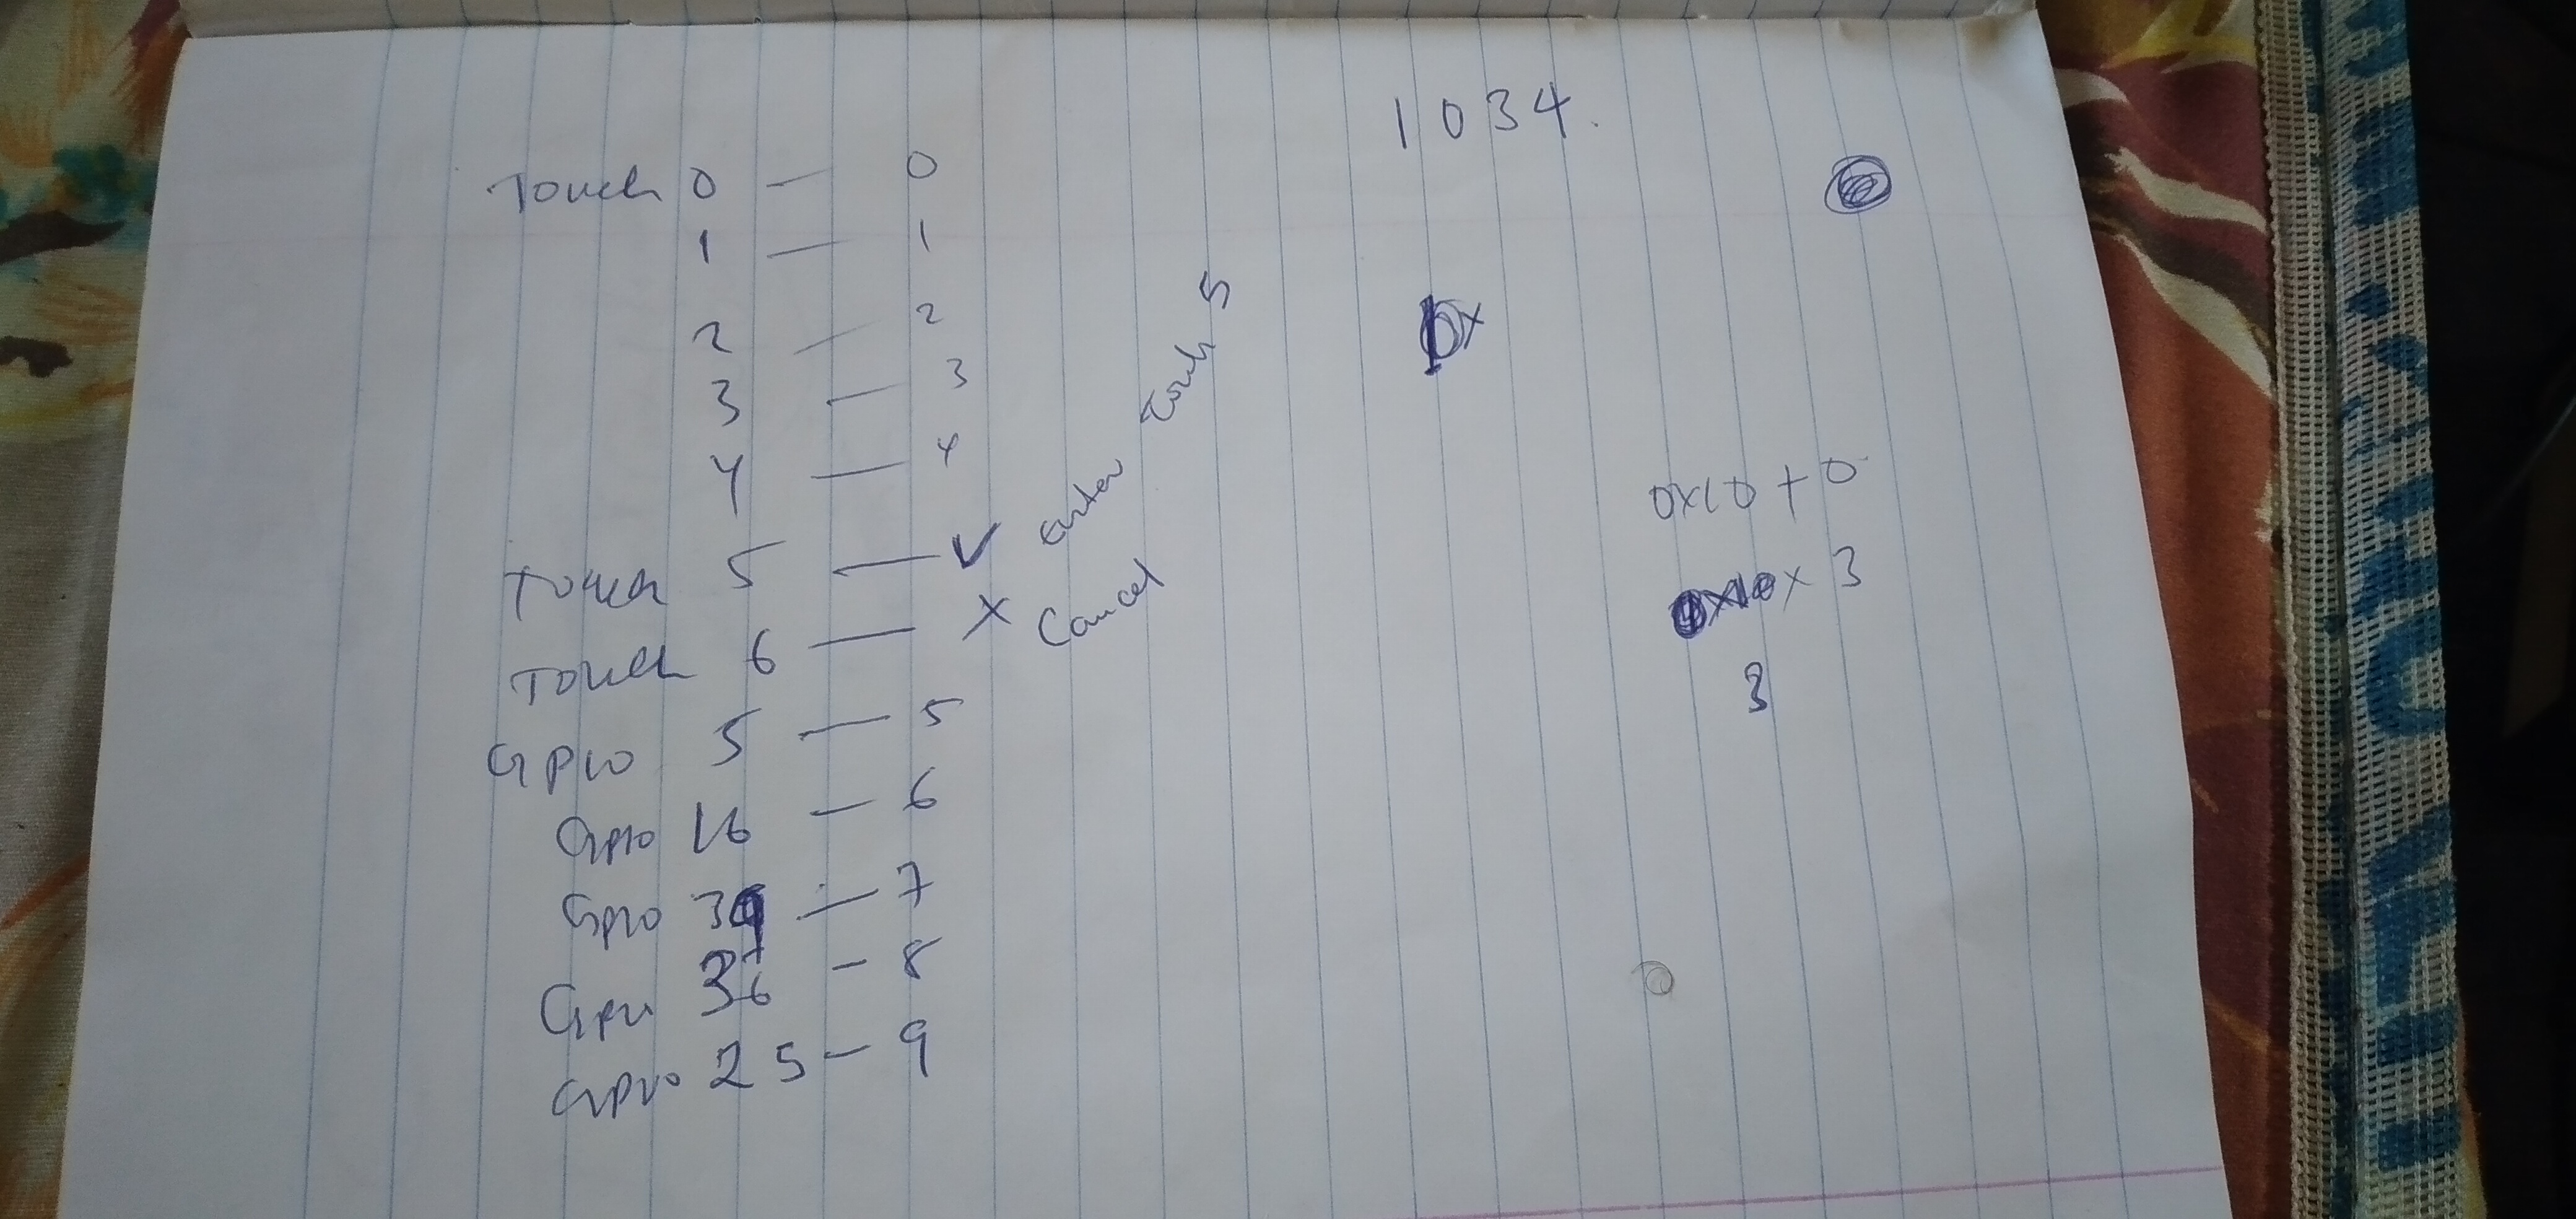 1034.
Touch 0 — 0
1 — 1
2 — 2
3 — 3
4 — 4
Touch 5 — ✓ enter Touch 5
Touch 6 — X Cancel
GPIO 5 — 5
GPIO 16 — 6
GPIO 39 — 7
GPIO 36 — 8
GPIO 25 — 9
0x10 + 0
x 3
3